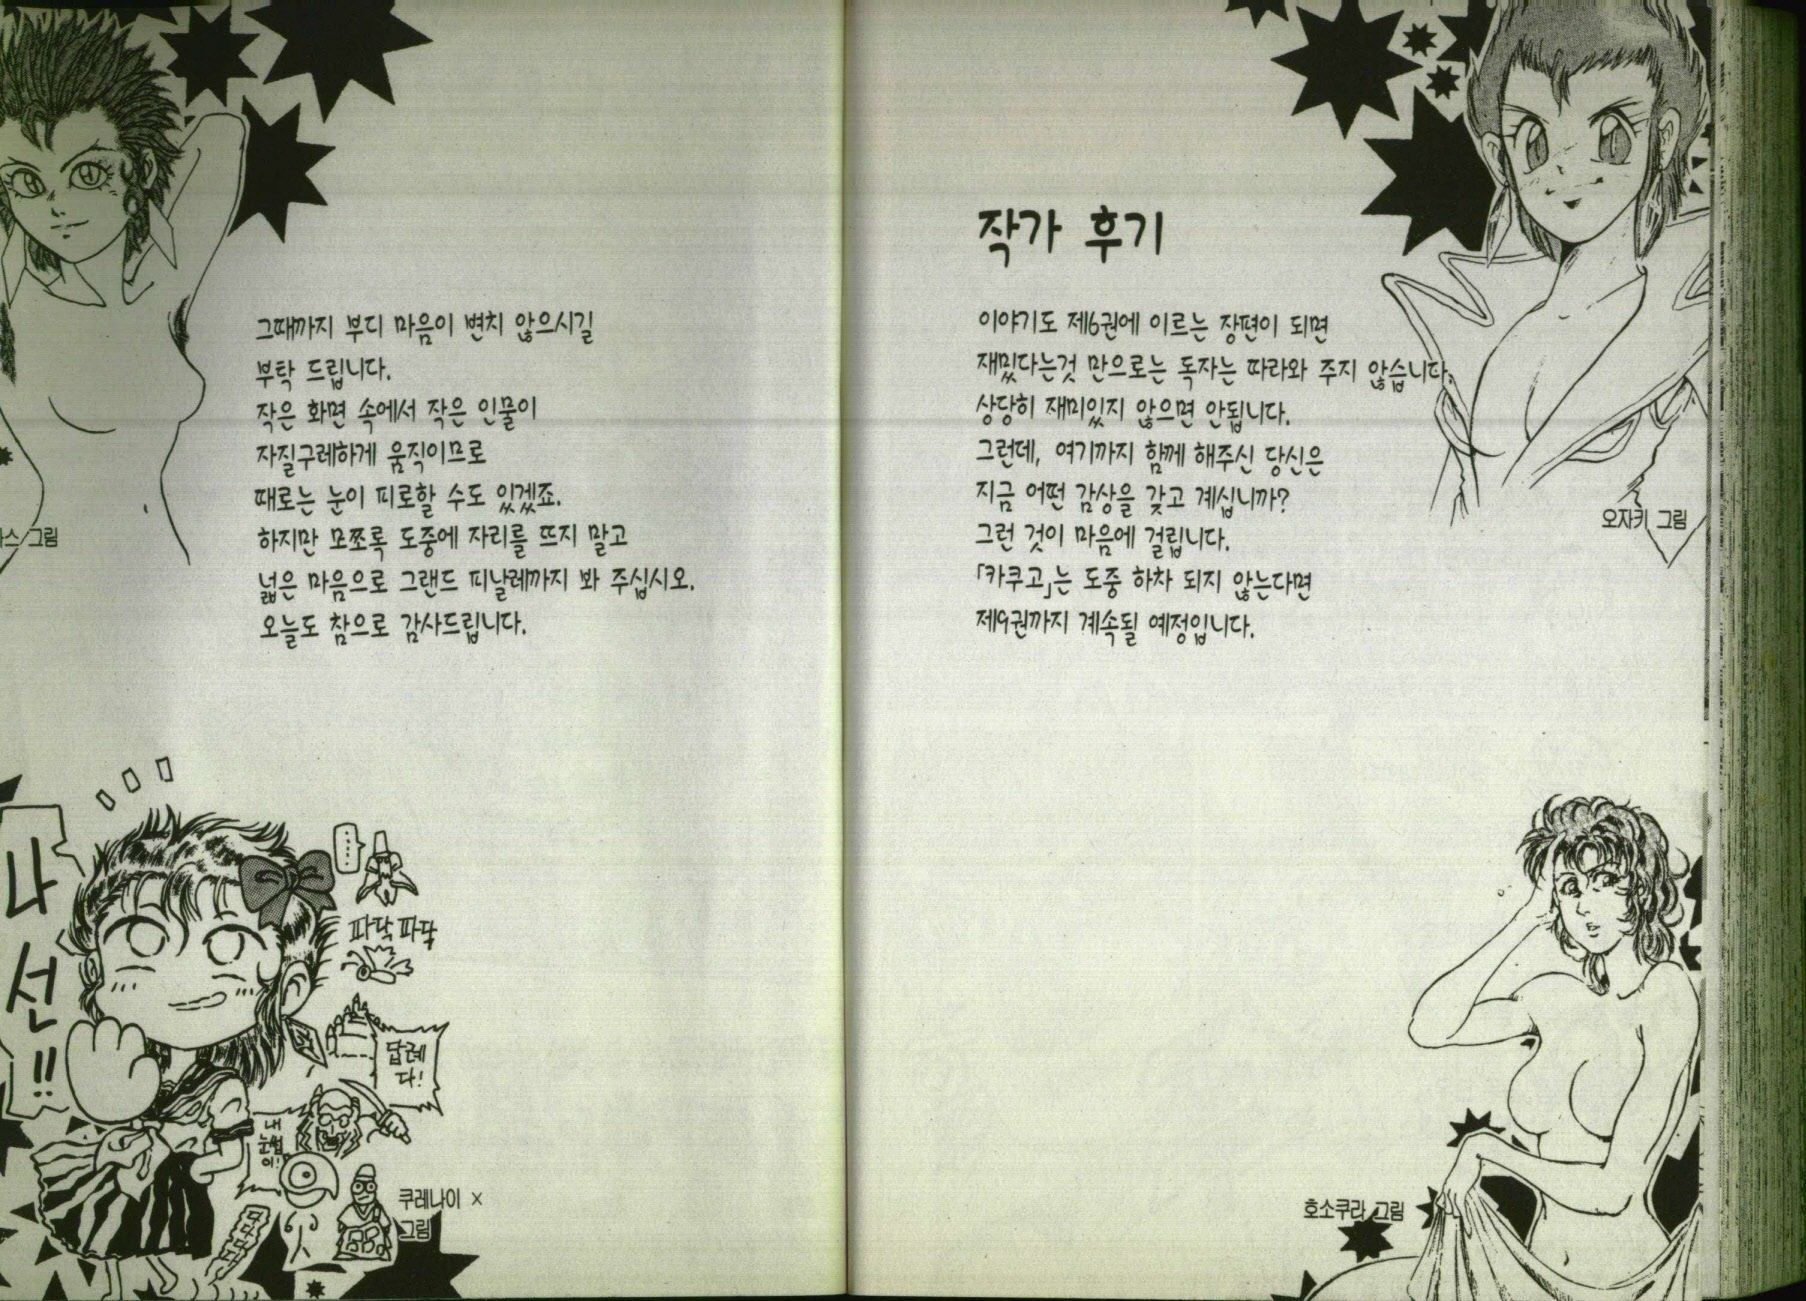 작가 후기
이야기도 제6권에 이르는 장편이 되면
재밌다는것 만으로는 독자는 따라와 주지 않습니다.
상당히 재미있지 않으면 안됩니다.
그런데, 여기까지 함께 해주신 당신은
지금 어떤 감상을 갖고 계십니까?
그런 것이 마음에 걸립니다.
「카쿠고」는 도중 하차 되지 않는다면
제9권까지 계속될 예정입니다.
오자키 그림
호소쿠라 그림
그때까지 부디 마음이 변치 않으시길
부탁 드립니다.
작은 화면 속에서 작은 인물이
자질구레하게 움직이므로
때로는 눈이 피로할 수도 있겠죠.
하지만 모쪼록 도중에 자리를 뜨지 말고
넓은 마음으로 그랜드 피날레까지 봐 주십시오.
오늘도 참으로 감사드립니다.
스 그림
나
선!!
파닥 파닥
답례
다!
내
눈썹
이!
쿠레나이 ×
그림